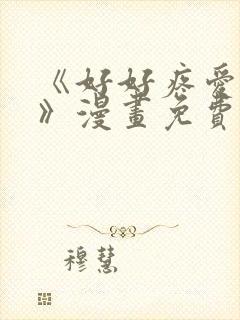 《好好疼爱
》漫畫免費
穆慧